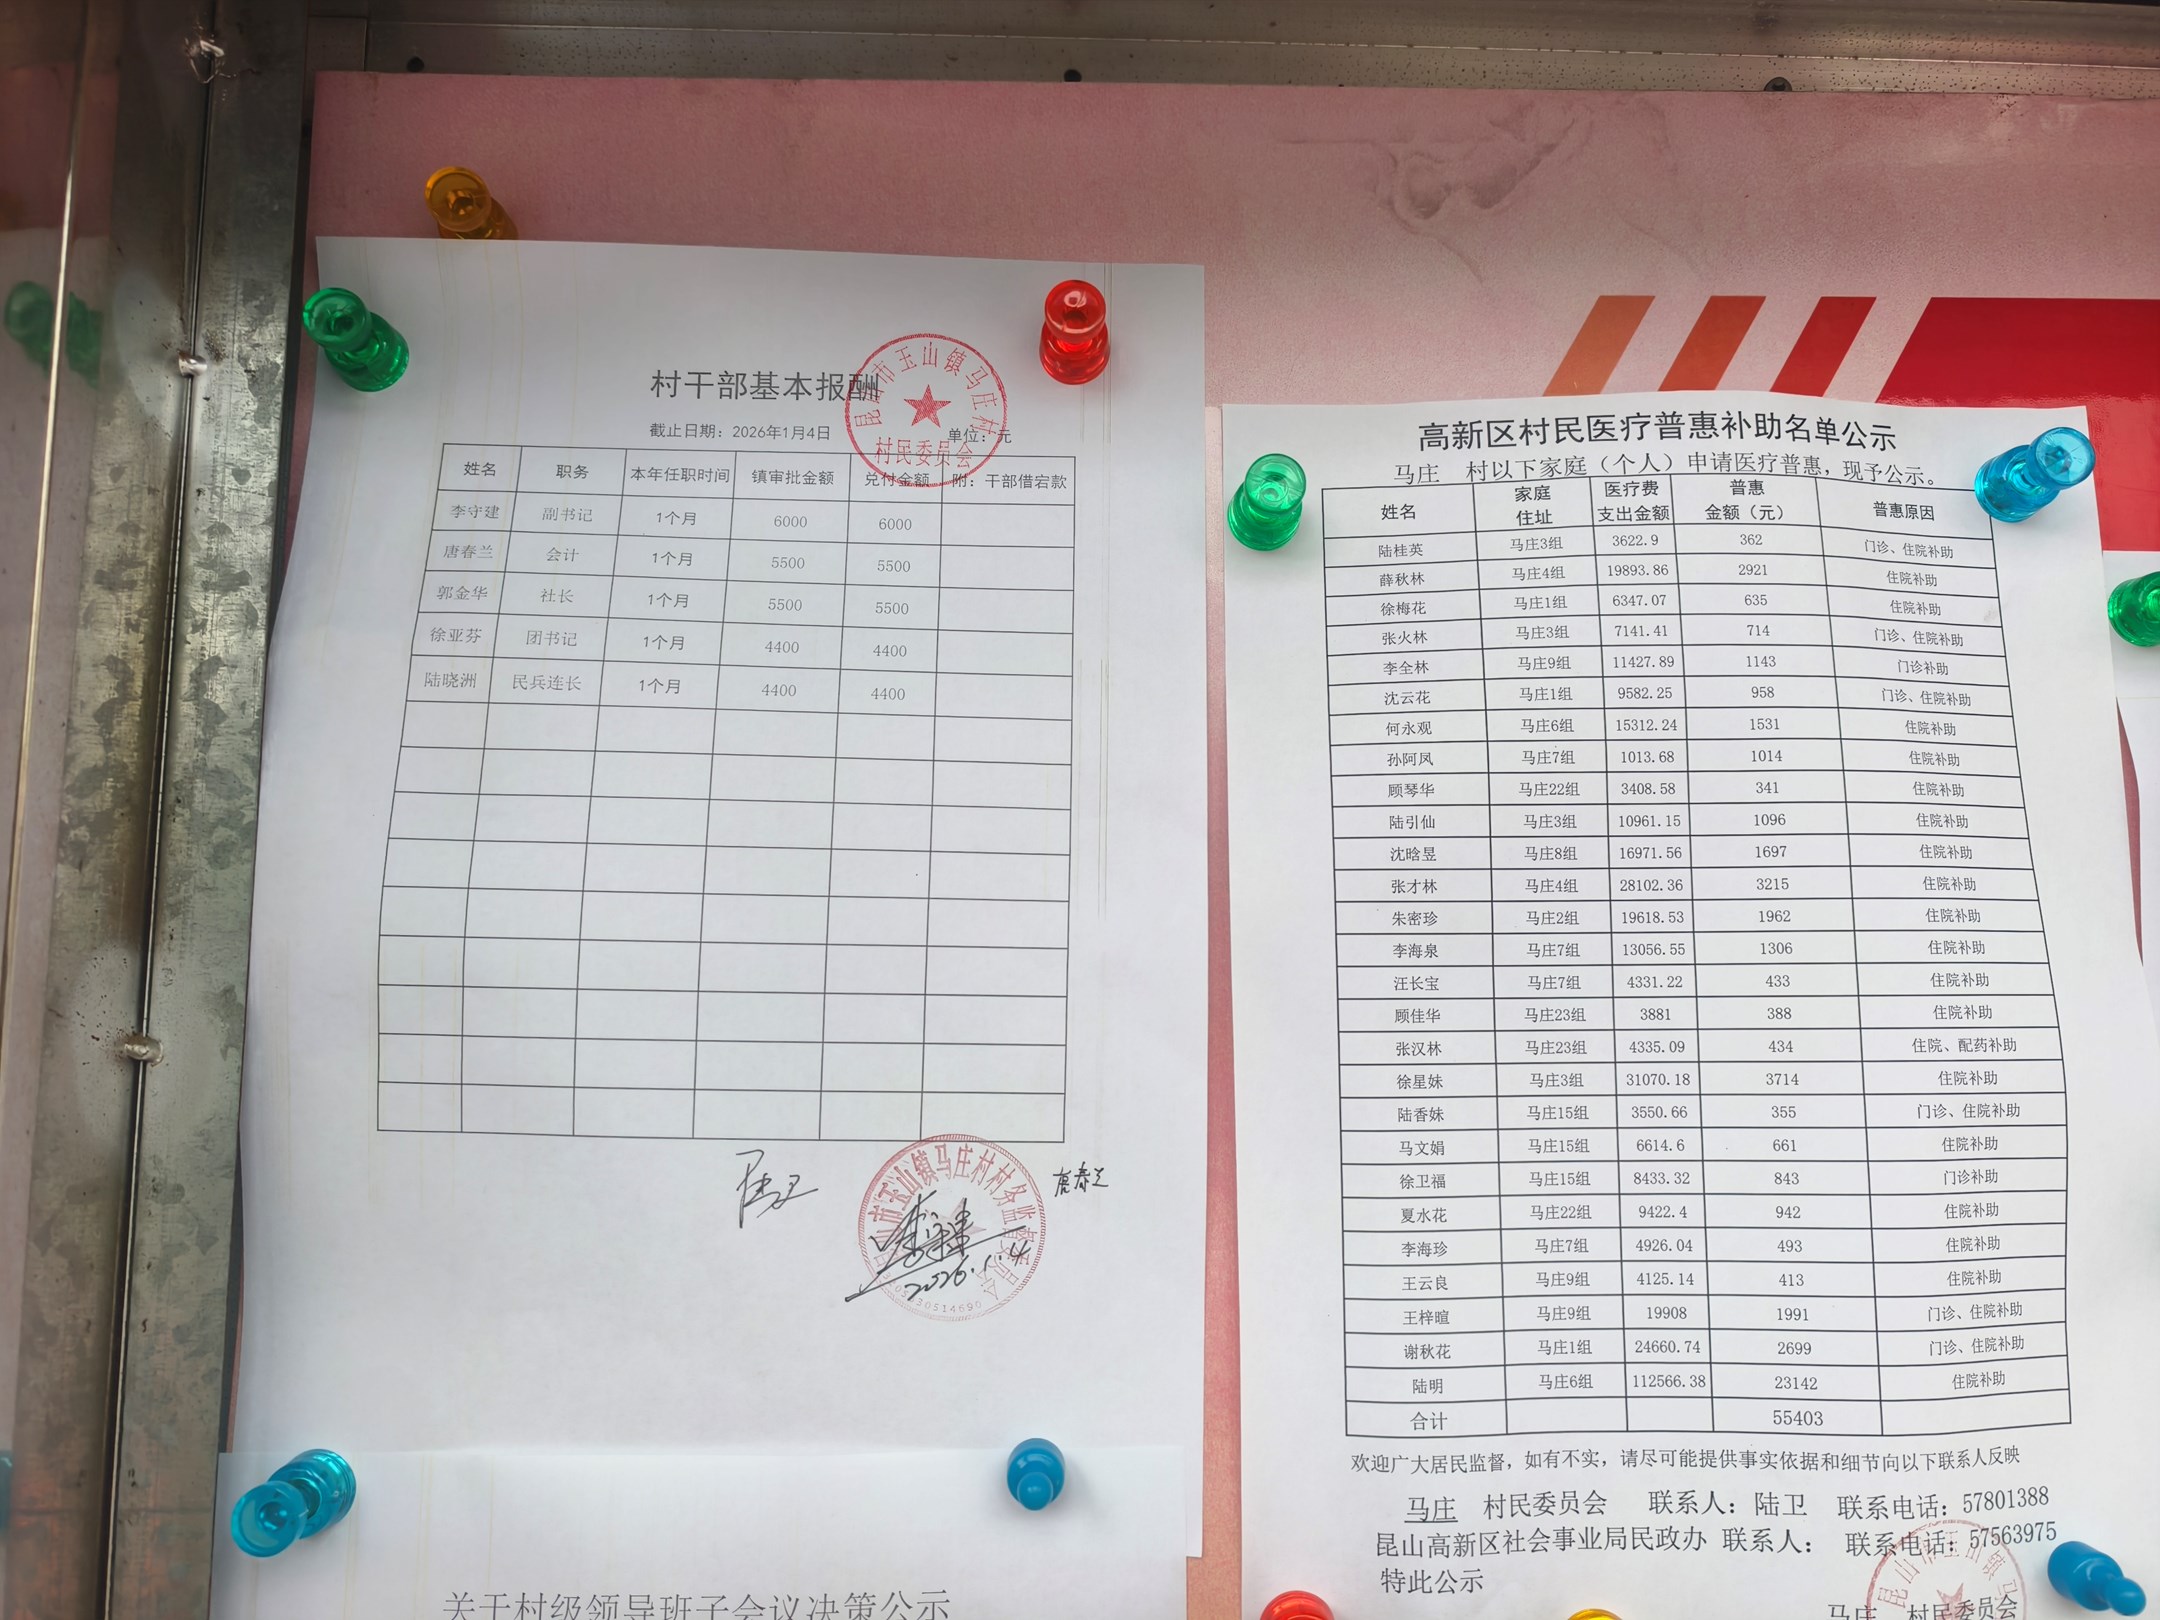 村干部基本报酬
截止日期：2026年1月4日 单位：元
姓名 职务 本年任职时间 镇审批金额 兑付金额 附：干部借宕款
李守建 副书记 1个月 6000 6000
唐春兰 会计 1个月 5500 5500
郭金华 社长 1个月 5500 5500
徐亚芬 团书记 1个月 4400 4400
陆晓洲 民兵连长 1个月 4400 4400
昆山市玉山镇马庄村
村民委员会
唐春兰
2026.1.4
关于村级领导班子会议决策公示
高新区村民医疗普惠补助名单公示
马庄 村以下家庭（个人）申请医疗普惠，现予公示。
姓名 家庭住址 医疗费支出金额 普惠金额（元） 普惠原因
陆桂英 马庄3组 3622.9 362 门诊、住院补助
薛秋林 马庄4组 19893.86 2921 住院补助
徐梅花 马庄1组 6347.07 635 住院补助
张火林 马庄3组 7141.41 714 门诊、住院补助
李全林 马庄9组 11427.89 1143 门诊补助
沈云花 马庄1组 9582.25 958 门诊、住院补助
何永观 马庄6组 15312.24 1531 住院补助
孙阿凤 马庄7组 1013.68 1014 住院补助
顾琴华 马庄22组 3408.58 341 住院补助
陆引仙 马庄3组 10961.15 1096 住院补助
沈晗昱 马庄8组 16971.56 1697 住院补助
张才林 马庄4组 28102.36 3215 住院补助
朱密珍 马庄2组 19618.53 1962 住院补助
李海泉 马庄7组 13056.55 1306 住院补助
汪长宝 马庄7组 4331.22 433 住院补助
顾佳华 马庄23组 3881 388 住院补助
张汉林 马庄23组 4335.09 434 住院、配药补助
徐星妹 马庄3组 31070.18 3714 住院补助
陆香妹 马庄15组 3550.66 355 门诊、住院补助
马文娟 马庄15组 6614.6 661 住院补助
徐卫福 马庄15组 8433.32 843 门诊补助
夏水花 马庄22组 9422.4 942 住院补助
李海珍 马庄7组 4926.04 493 住院补助
王云良 马庄9组 4125.14 413 住院补助
王梓暄 马庄9组 19908 1991 门诊、住院补助
谢秋花 马庄1组 24660.74 2699 门诊、住院补助
陆明 马庄6组 112566.38 23142 住院补助
合计 55403
欢迎广大居民监督，如有不实，请尽可能提供事实依据和细节向以下联系人反映
马庄 村民委员会 联系人：陆卫 联系电话：57801388
昆山高新区社会事业局民政办 联系人： 联系电话：57563975
特此公示
马庄 村民委员会